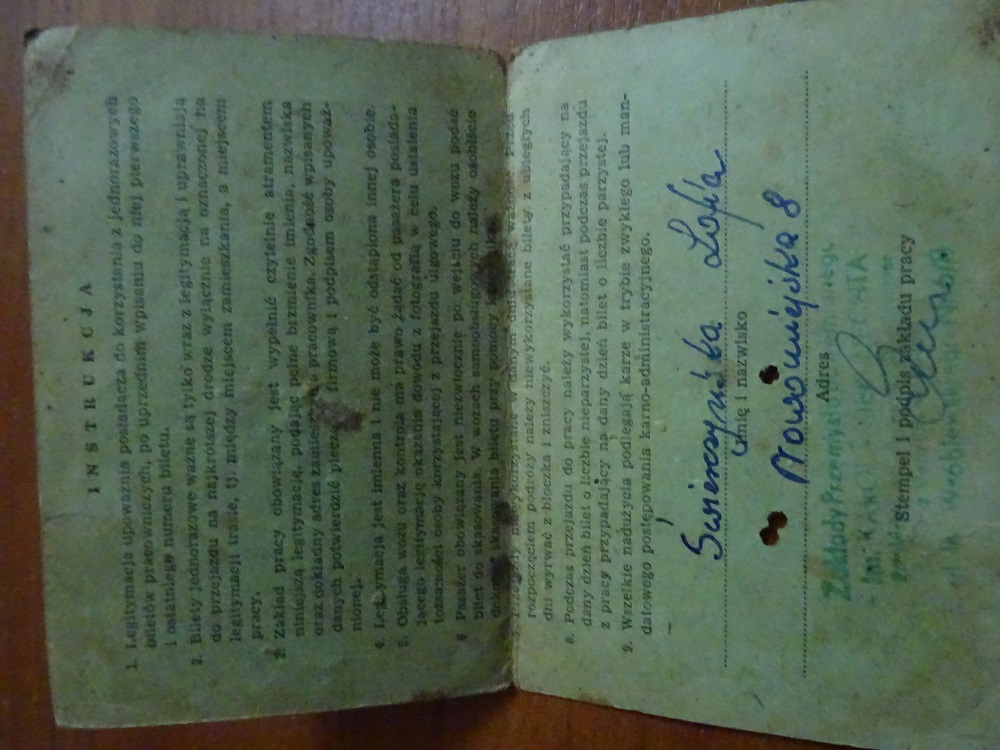 INSTRUKCJA
1. Legitymacja upoważnia posiadacza do korzystania z jednorazowych
biletów pracowniczych, po uprzednim wpisaniu do niej pierwszego
i ostatniego numeru biletu.
2. Bilety jednorazowe ważne są tylko wraz z legitymacją i uprawniają
do przejazdu na najkrótszej drodze wyłącznie na oznaczonej na
legitymacji trasie, tj. między miejscem zamieszkania, a miejscem
pracy.
3. Zakład pracy obowiązany jest wypełnić czytelnie atramentem
niniejszą legitymację, podając pełne brzmienie imienia, nazwiska
oraz dokładny adres zamieszk. pracownika. Zgodność wpisanych
danych potwierdzić pieczęcią firmową i podpisem osoby upoważ-
nionej.
4. Legitymacja jest imienna i nie może być odstąpiona innej osobie.
5. Obsługa wozu oraz kontrola ma prawo żądać od pasażera posiada-
jącego legitymację okazania dowodu z fotografią w celu ustalenia
tożsamości osoby korzystającej z przejazdu ulgowego.
6 Pasażer obowiązany jest niezwłocznie po wejściu do wozu podać
bilet do skasowania. W wozach samoobsługowych należy osobiście
skasowania biletu przy pomocy
7. Przejazdy niewykorzystane w danym dniu tracą ważność. Przed
rozpoczęciem podróży należy niewykorzystane bilety z ubiegłych
dni wyrwać z bloczka i zniszczyć.
8. Podczas przejazdu do pracy należy wykorzystać przypadający na
dany dzień bilet o liczbie nieparzystej, natomiast podczas przejazdu
z pracy przypadający na dany dzień bilet o liczbie parzystej.
9. Wszelkie nadużycia podlegają karze w trybie zwykłego lub man-
datowego postępowania karno-administracyjnego.
Świerczyńska Zofia
Imię i nazwisko
Nowomiejska 8
Adres
Zakłady Przemysłu
im.
Stempel i podpis zakładu pracy